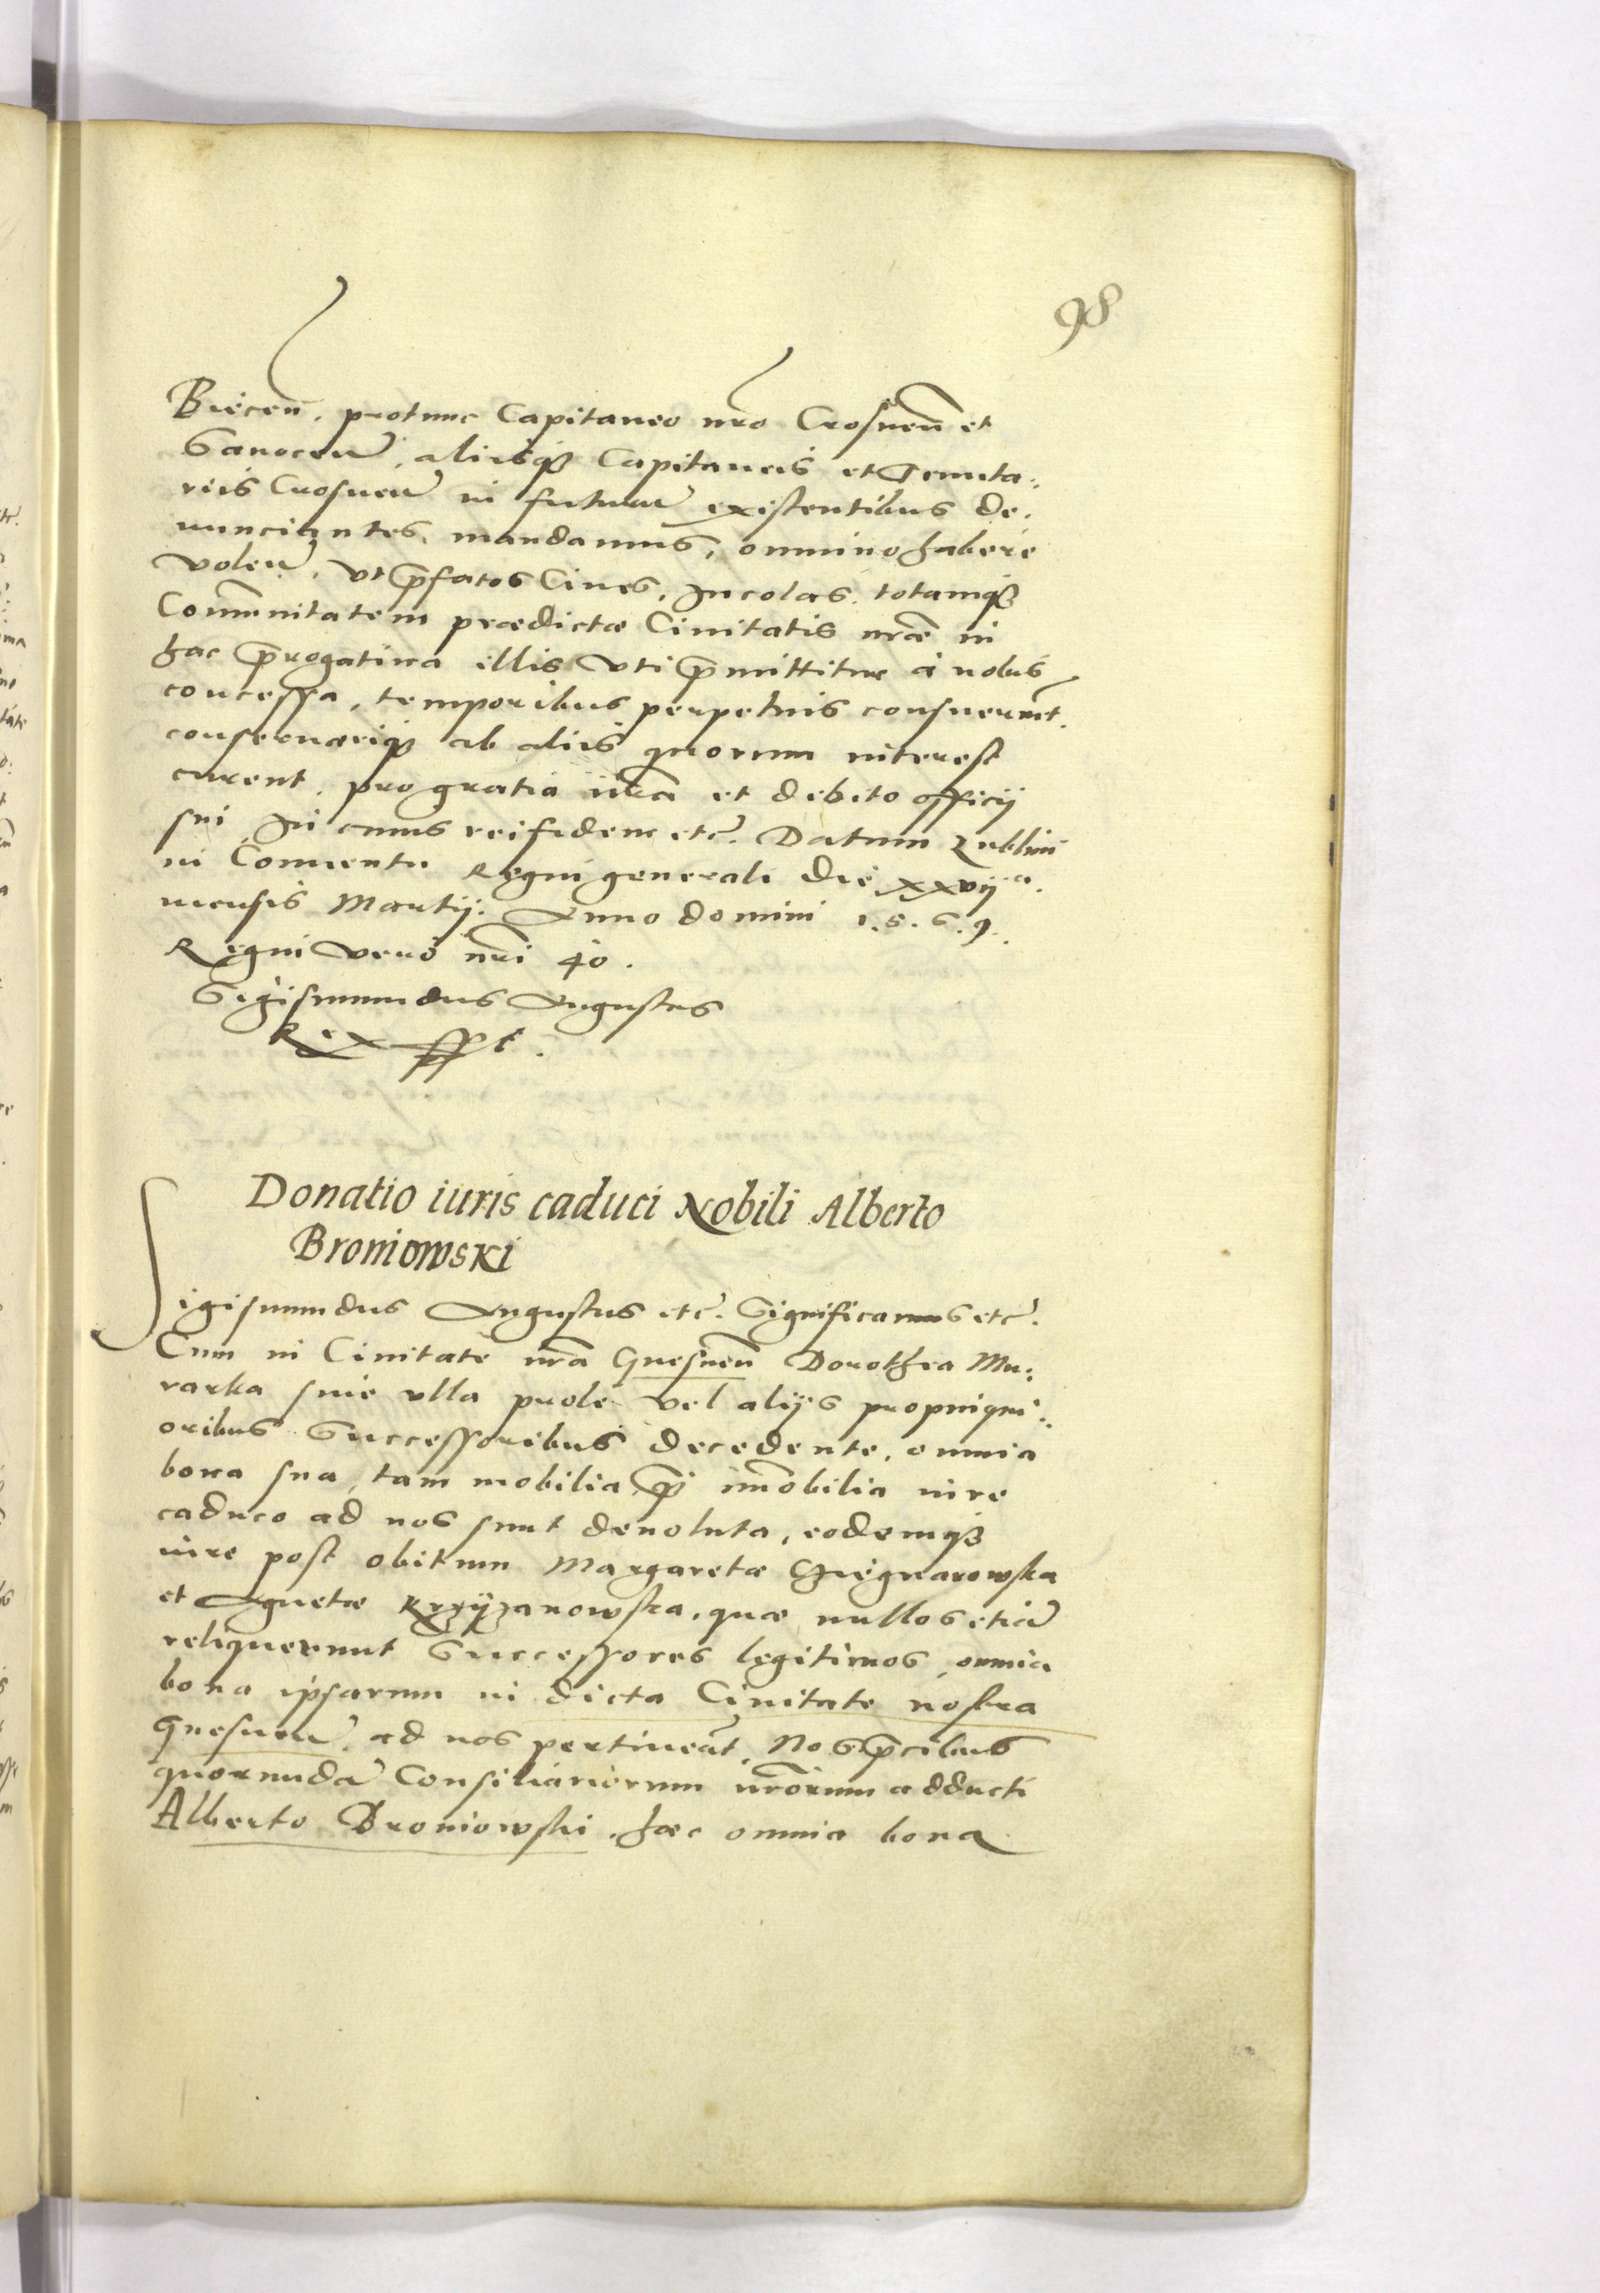 98
Biecen̄. protunc Capitaneo nr̄o Crosnen̄ et
Sanocen̄, aliisqꝫ Capitaneis et Tenuta:
riis Crosnen̄ in futurū existentibus de:
nunciantes, mandamus, omnino habere
volen̄, vt p̄fatos Ciues, Incolas, totamqꝫ
Com̄unitatem prædictæ Ciuitatis nr̄æ in
hac p̄rogatiua illis vti p̄mittitur à nobis
concessa, temporibus perpetuis conseruent.
conseruariqꝫ ab aliis quorum interest
curent, pro gratia nr̄a et debito officij
sui, In cuius rei fidem etc̄. Datum Lublini
in Conuentu Regni generali die xxvijᵃ.
mensis Martij. Anno domini 1.5.6.9.
Regni vero nr̄i 40.
Sigismundus Augustus
Rex sst.
Donatio iuris caduci Nobili Alberto
Broniowski
Sigismundus Augustus etc̄. Significamus etc̄.
Cum in Ciuitate nr̄a Gnesnen̄ Dorothea Mu:
rarka sine vlla prole vel alijs propinqui:
oribus Successoribus decedente, omnia
bona sua, tam mobilia q̄ im̄obilia iure
caduco ad nos sunt deuoluta, eodemqꝫ
iure post obitum Margaretæ Gnegnarowska
et Agnetæ Krzÿzanowska, quæ nullos etiā
reliquerunt Successores legitimos, omnia
bona ipsarum in dicta Ciuitate nostra
Gnesnen̄, ad nos pertineāt, Nos p̄cibus
quorundā Consiliariorum nr̄orum adducti
Alberto Broniowski, hæc omnia bona